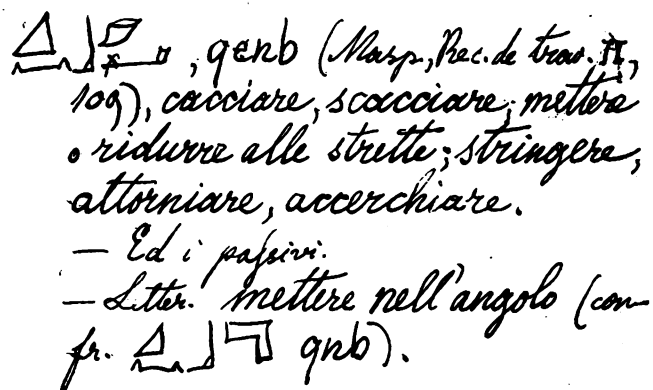 𓈎𓈖𓃀, qenb (Masp, Rec. de trav. II,
109), cacciare, scacciare; mettere
o ridurre alle strette; stringere,
attorniare, accerchiare.
— Ed i passivi.
— Letter. mettere nell'angolo (con-
fr. 𓈎𓈖𓃀𓘉 qnb).